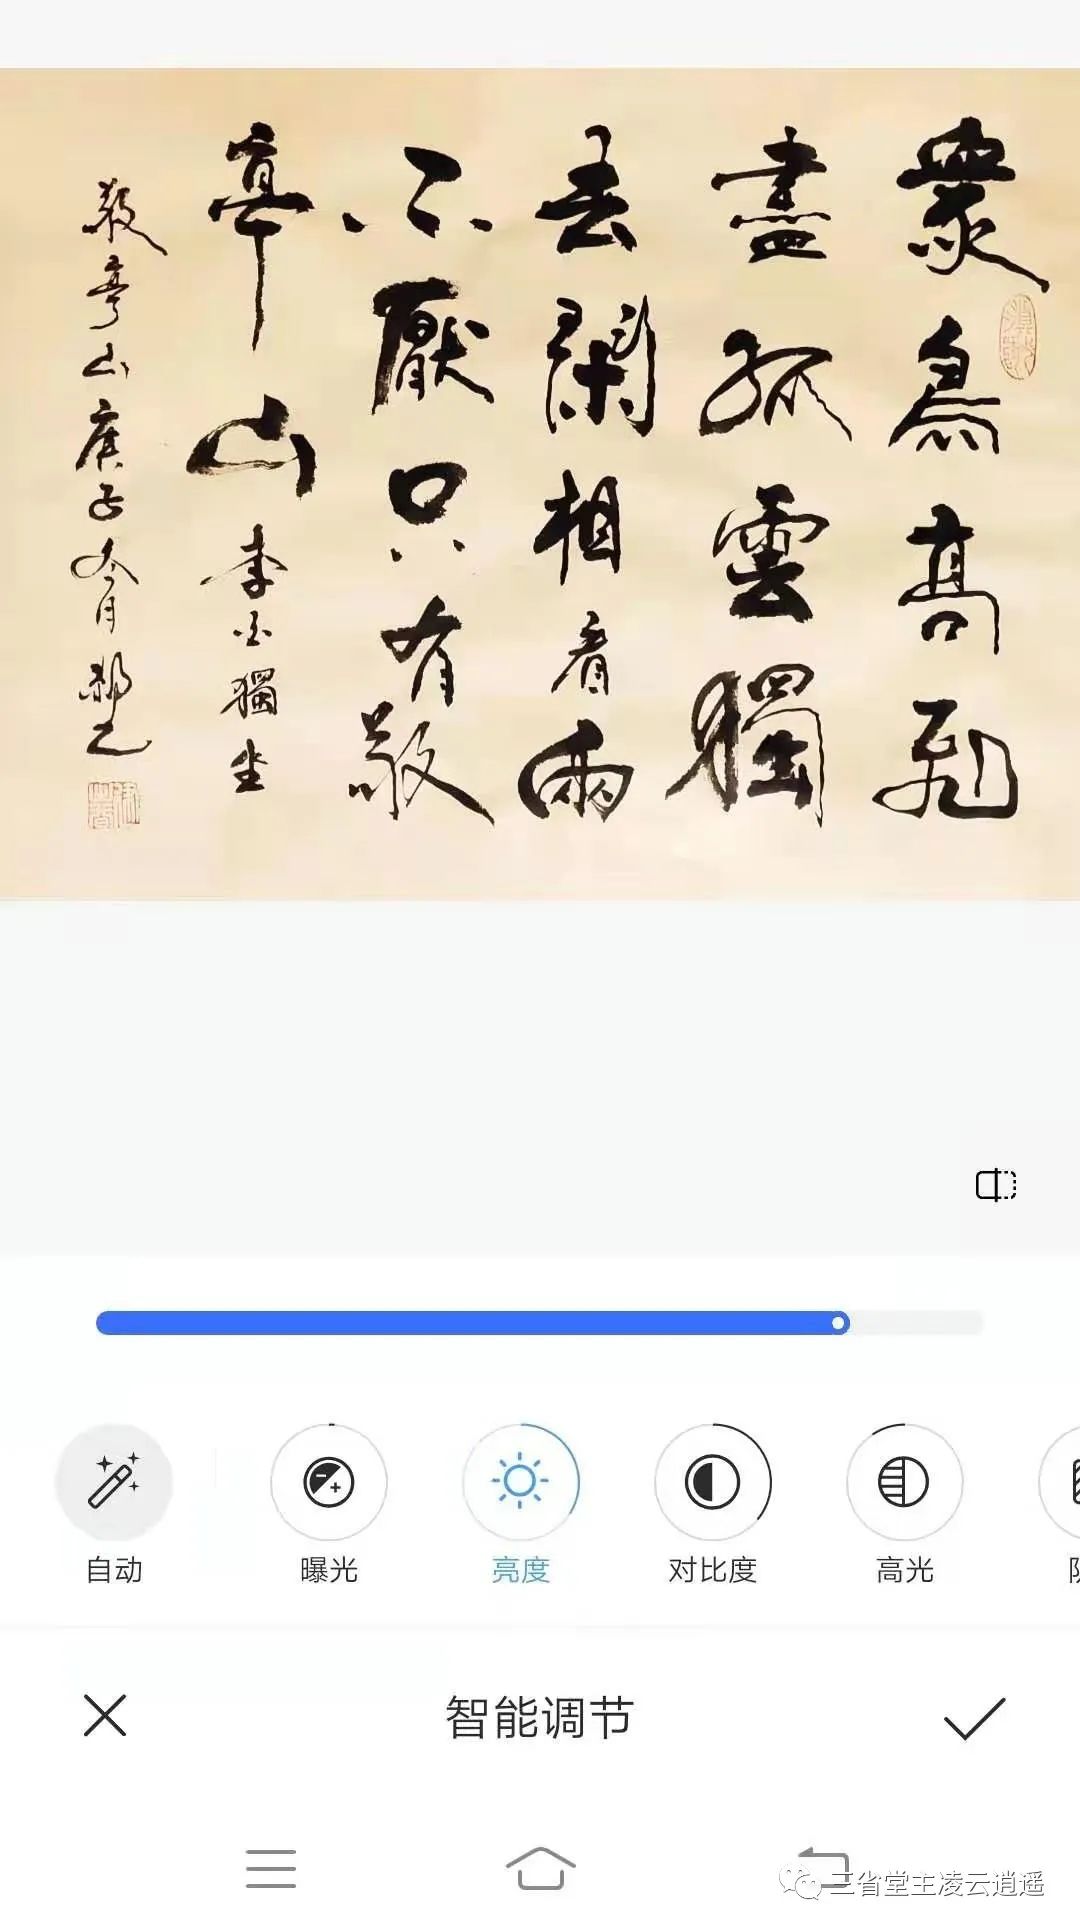 衆鳥高飛
盡孤雲獨
去閑相看兩
不厭只有敬
亭山李白獨坐
敬亭山庚子冬月
自动
曝光
亮度
对比度
高光
智能调节
三省堂主凌云逍遥